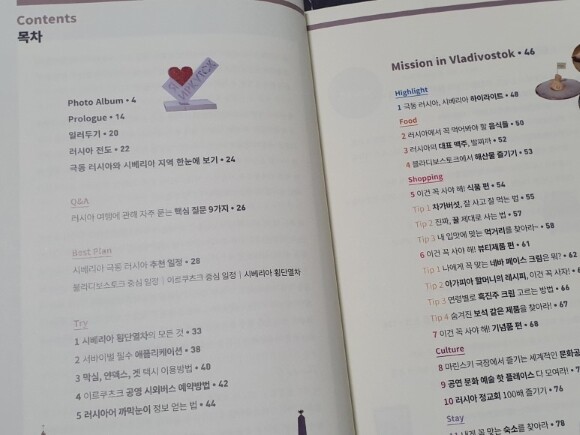 Contents
목차
Photo Album • 4
Prologue • 14
일러두기 • 20
러시아 전도 • 22
극동 러시아와 시베리아 지역 한눈에 보기 • 24
Q&A
러시아 여행에 관해 자주 묻는 핵심 질문 9가지 • 26
Best Plan
시베리아 극동 러시아 추천 일정 • 28
블라디보스토크 중심 일정 | 이르쿠츠크 중심 일정 | 시베리아 횡단열차
Try
1 시베리아 횡단열차의 모든 것 • 33
2 서바이벌 필수 애플리케이션 • 38
3 막심, 얀덱스, 겟 택시 이용방법 • 40
4 이르쿠츠크 공영 시외버스 예약방법 • 42
5 러시아어 까막눈이 정보 얻는 법 • 44
Mission in Vladivostok • 46
Highlight
1 극동 러시아, 시베리아 하이라이트 • 48
Food
2 러시아에서 꼭 먹어봐야 할 음식들 • 50
3 러시아의 대표 맥주, 발찌까 • 52
4 블라디보스토크에서 해산물 즐기기 • 53
Shopping
5 이건 꼭 사야 해! 식품 편 • 54
Tip 1 차가버섯, 잘 사고 잘 먹는 법 • 55
Tip 2 진짜, 꿀 제대로 사는 법 • 57
Tip 3 내 입맛에 맞는 먹거리를 찾아라~ • 58
6 이건 꼭 사야 해! 뷰티제품 편 • 61
Tip 1 나에게 꼭 맞는 네바 페이스 크림은 뭐? • 62
Tip 2 아가피아 할머니의 레시피, 이건 꼭 사자! •
Tip 3 연령별로 흑진주 크림 고르는 방법 • 66
Tip 4 숨겨진 보석 같은 제품을 찾아라! • 67
7 이건 꼭 사야 해! 기념품 편 • 68
Culture
8 마린스키 극장에서 즐기는 세계적인 문화공
9 공연 문화 예술 핫 플레이스 다 모여라! •
10 러시아 정교회 100배 즐기기 • 76
Stay
내게 꼭 맞는 숙소를 찾아라! • 78